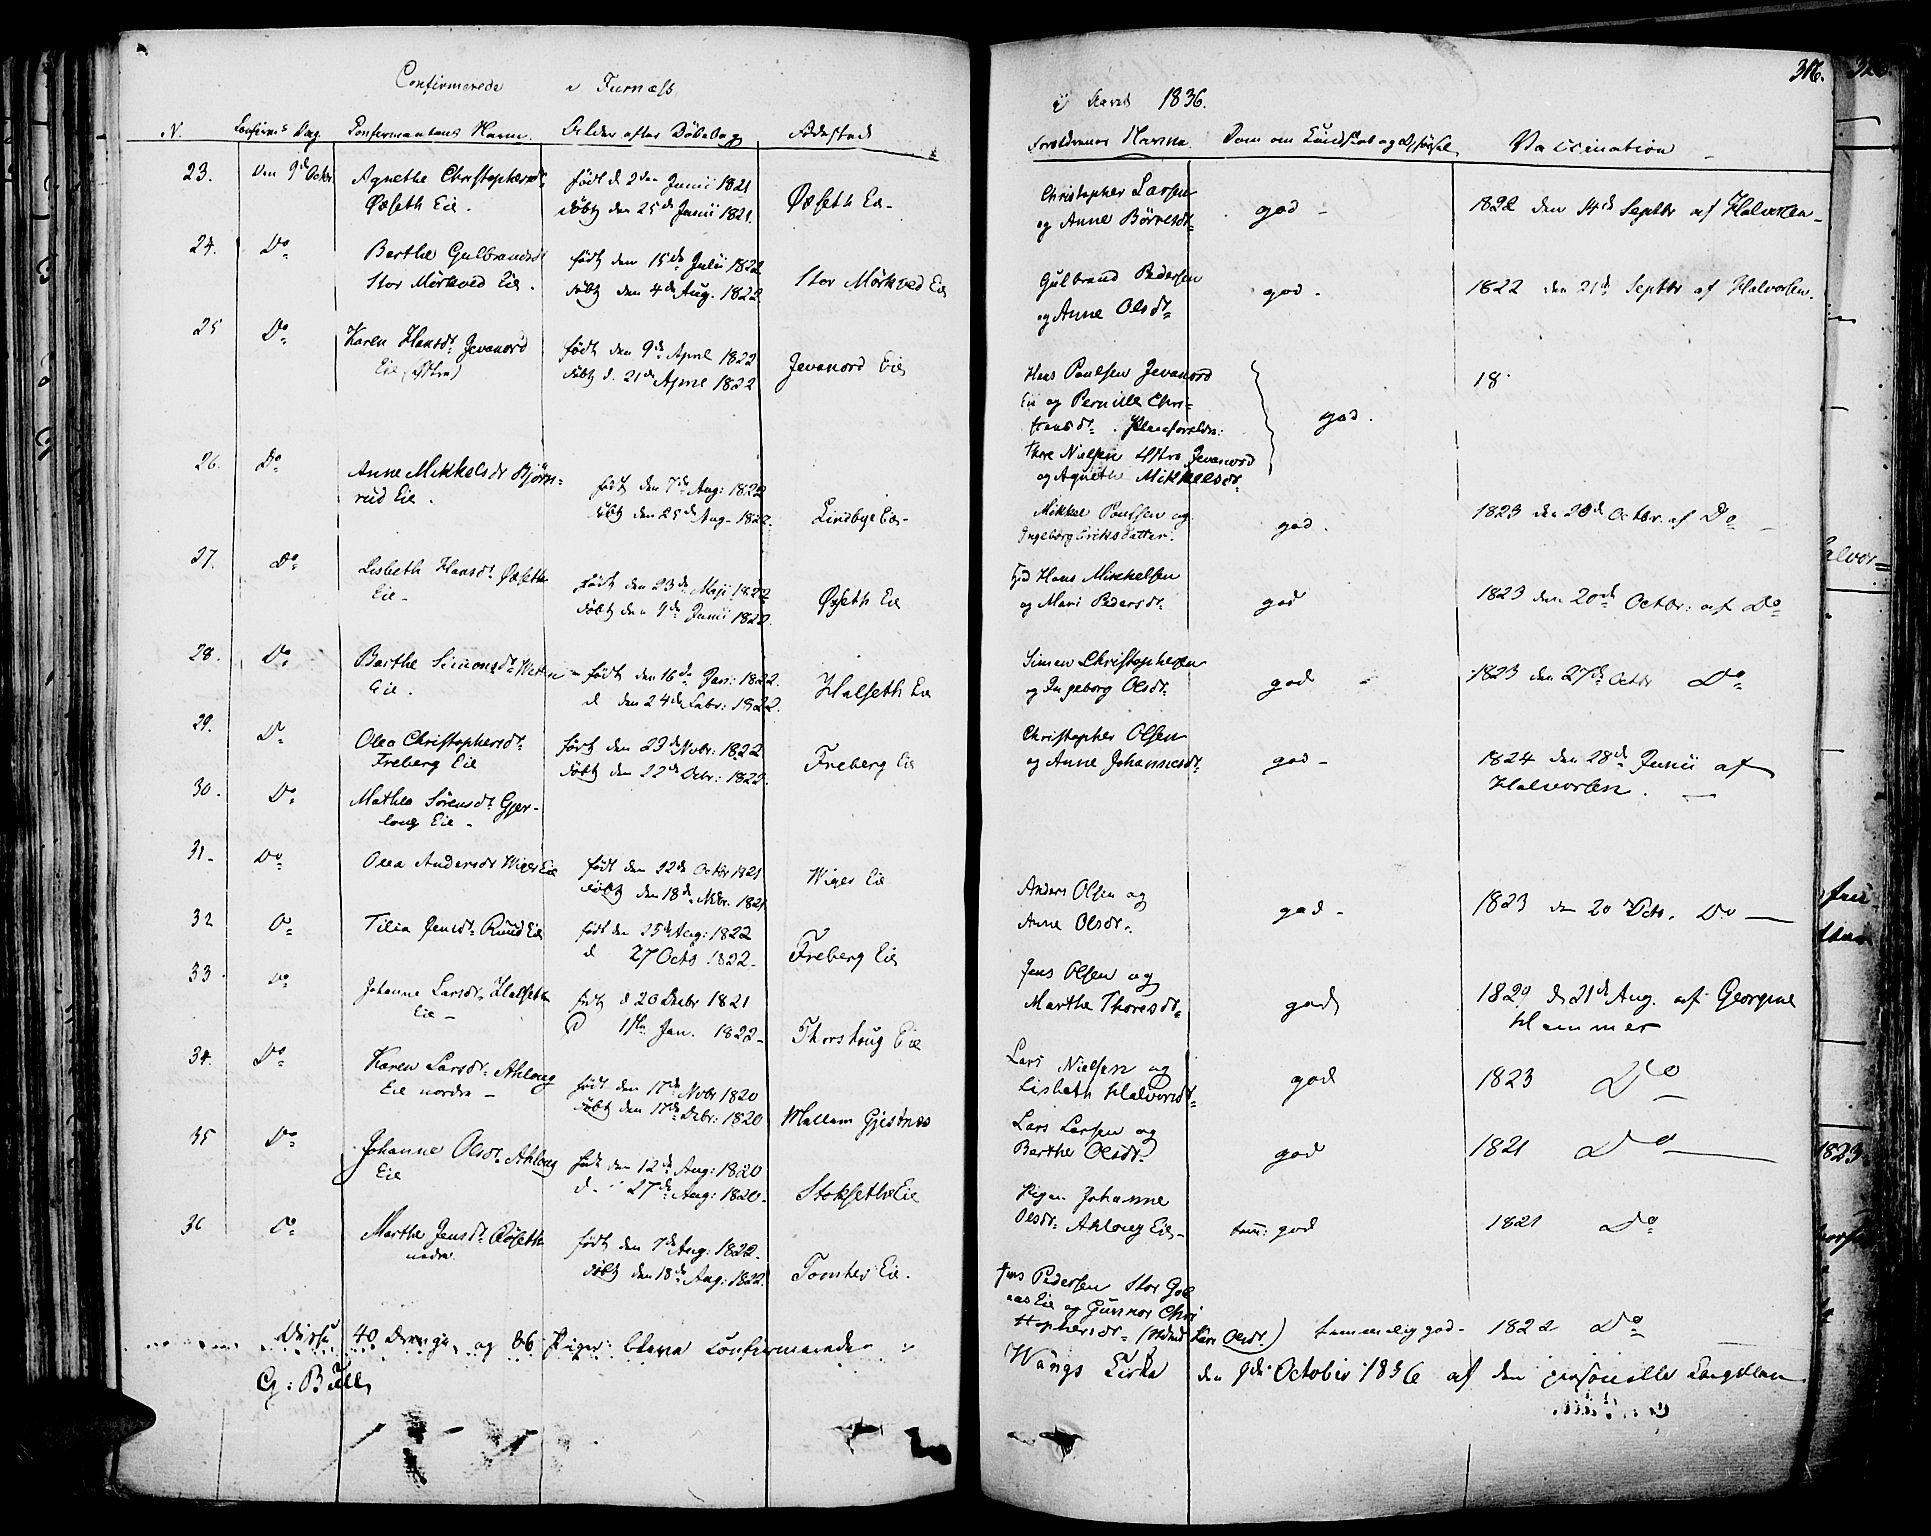 Confirmerede i Furnæss
i Aaret 1836.
316.
N. Confirms Dag. Confirmantens Navn. Alder efter Døbedag Fødestad
Forældrenes Navne Dom om Kundskab og Opførsel Vaccination
23. Den 9de Octbr Agnethe Christophersdt. født d 2den Junii 1821
Øæseth Eie. døbt den 25de Junii 1821. Øæseth Eie
Christopher Larsen
og Anne Børresdt. god 1822 den 14de Septbr af Halvorsen
24. Do Berthe Gulbrandsdt født den 15de Julii 1822
Stor Mørkved Eie. døbt den 4de Aug. 1822 Stor Mørkved Eie
Gulbrand Pedersen
og Anne Olsdt. god. 1822 den 21de Septbr af Halvorsen.
25 Do Karen Hansdt. Jevanord født den 9de April 1822
Eie (Østre) døbt d. 21de April 1822 Jevanord Eie
Hans Poulsen Jevanord
Eie og Pernille Chri-
stiansdt. Pleieforældre:
Thore Nielsen Østre Jevanord
og Agnethe Mikkelsdt. god. 18
26. Do Anne Mikkelsdt Bjørn-
rud Eie. født den 7de Aug: 1822
døbt den 25de Aug. 1822. Lindbye Eie
Mikkel Poulsen og
Ingeborg Eriksdatter. god. 1823 den 20de Octbr. af Do
27. Do Lisbeth Hansdt. Øæseth
Eie født den 23de Maji 1822
døbt den 9de Junii 1822. Øæseth Eie
Hans Mikkelsen
og Mari Pedersdt. god 1823 den 20de Octbr: af Do
28. Do Berthe Simonsdt.
Eie. født den 16de Jan: 1822.
d den 24de Febr: 1822. Halseth Eie
Simen Christophersen
og Ingeborg Olsdt. god 1823 den 27de Octbr Do
29. Do Olea Christophersdt.
Freberg Eie født den 23de Novbr: 1822
døbt den 22de Decbr: 1822. Freberg Eie
Christopher Olsen
og Anne Johannesdt. god 1824 den 28de Junii af
Halvorsen.
30. Do Mathea Sørensdt. Gjer-
loug Eie
31. Do Olea Andersdt Wiger Eie født den 22de Octbr 1821
døbt den 18de Novbr. 1821 Wiger Eie
Anders Olsen og
Anne Olsdt. god 1823 den 20 Octb. Do
32 Do Tilia Jensdt. Ruud Eie født den 25de Aug: 1822
d 27 Octb. 1822. Freberg Eie
Jens Olsen og
Marthe Thoresdt. god 1829 d 21de Aug. af Georgine
Hammer
33. Do Johanne Larsdt. Halseth
Eie født d 20 Decbr 1821
d 1ste Jan. 1822 Thorshoug Eie
Lars Nielsen og
Lisbeth Halvorsdt. god 1823 Do
34. Do Karen Larsdt. Ahloug
Eie nordre født den 17de Novbr 1820
døbt den 17de Decbr: 1820 Mellem Gjesønes
Lars Larsen og
Berthe Olsdt. god 1821 Do
35 Do Johanne Olsdt. Ahloug
Eie født den 12de Aug: 1820
d. 27de Aug: 1820. Stokseth Eie
Pigen Johanne
Olsdt. Ahloug Eie god 1821 Do
36 Do Marthe Jensdt. Røseth
nedre født den 7de Aug: 1822.
døbt den 18de Aug: 1822. Toenter Eie.
Jens Pedersen Stor
Eie og Gunnor Chri
stophersdt. temmelig god. 1822 Do
Disse 40 Drenge og 36 Piger bleve confirmerede
Wangs Kirke den 9de October 1836 af den personelle Capellan
G: Bull